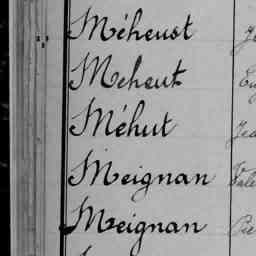 Méheust
Meheut
Méhut
Meignan
Meignan